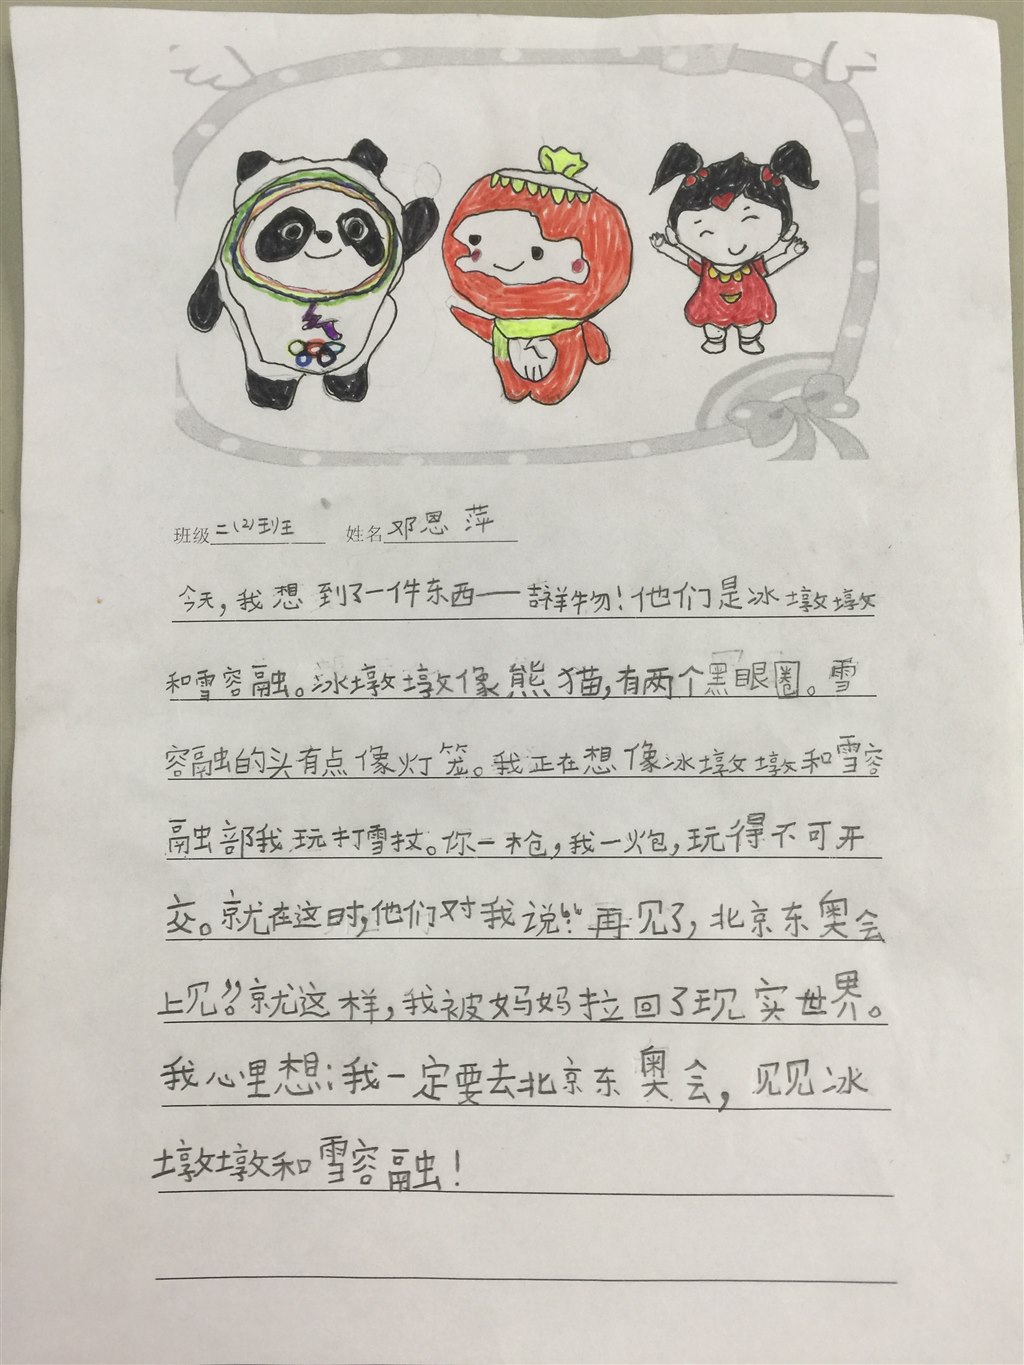 班级二(2)班 姓名邓恩萍
今天,我想到了一件东西——吉祥物!他们是冰墩墩
和雪容融。冰墩墩像熊猫,有两个黑眼圈。雪
容融的头有点像灯笼。我正在想像冰墩墩和雪容
融部我玩打雪技。你一枪,我一炮,玩得不可开
交。就在这时,他们对我说:“再见了,北京东奥会
上见?”就这样,我被妈妈拉回了现实世界。
我心里想:我一定要去北京东奥会,见见冰
墩墩和雪容融!